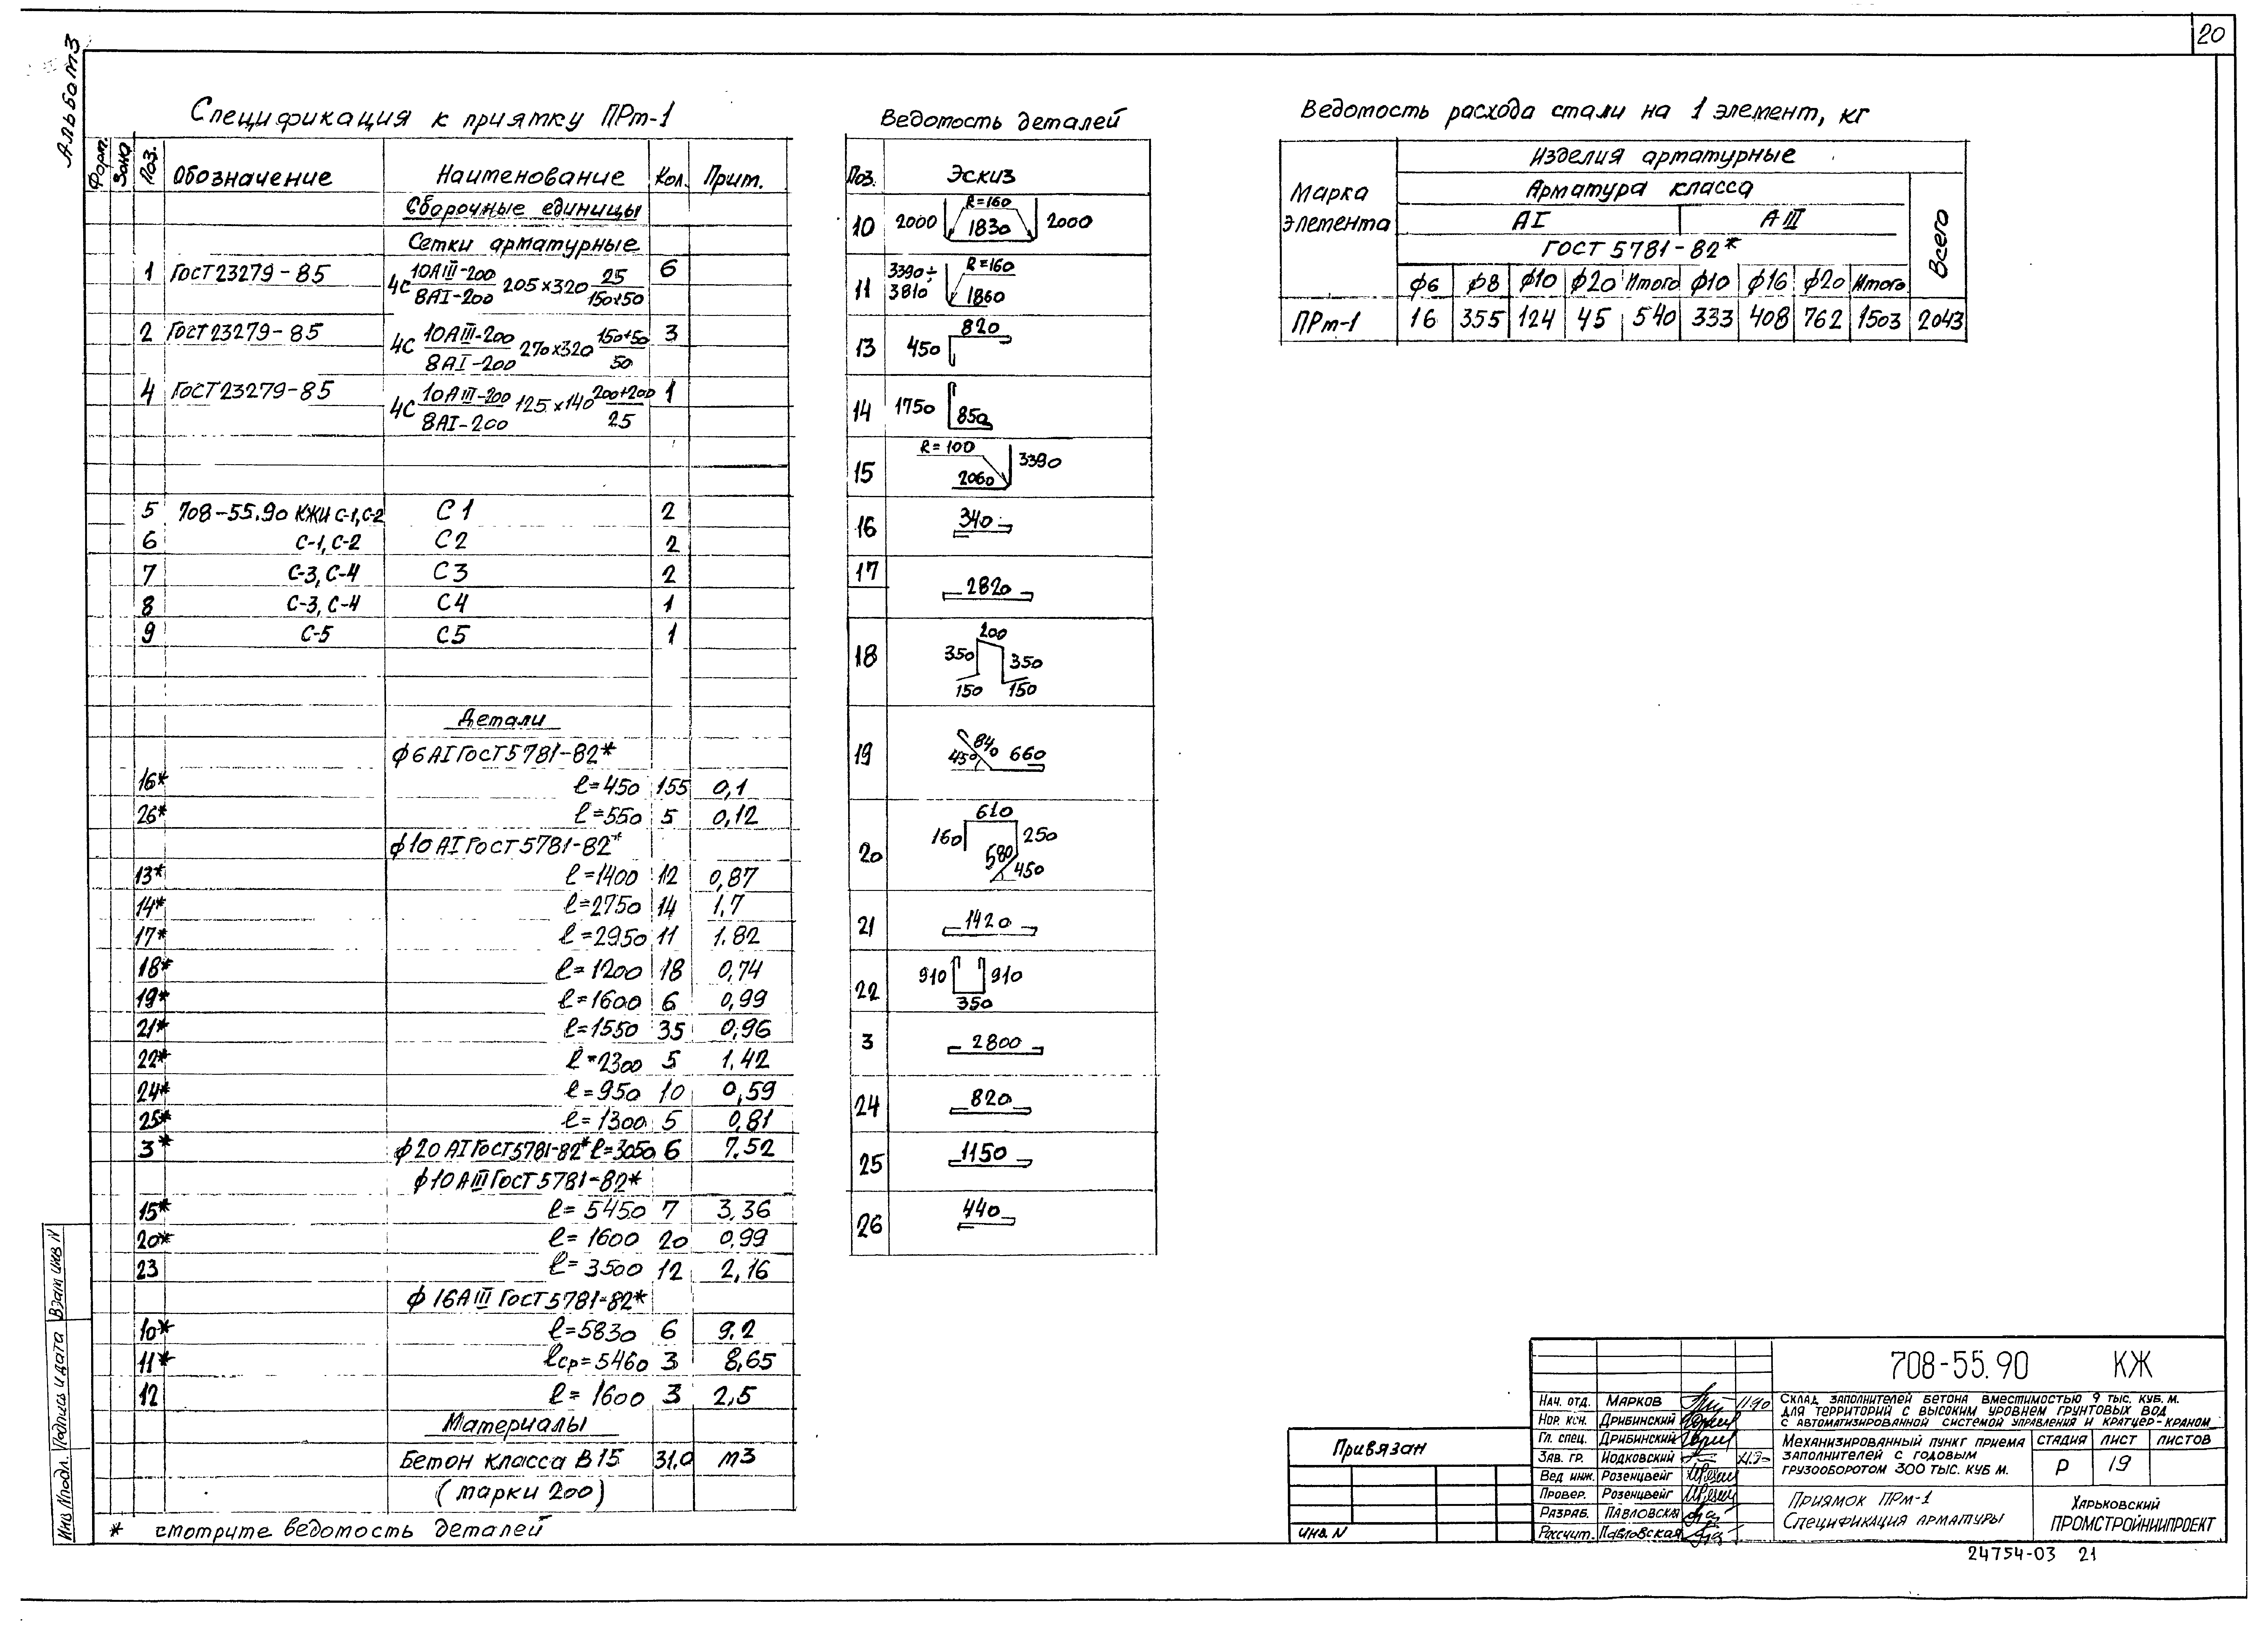 20
Альбом 3
Спецификация к приямку ПРм-1
Форм.
Зона
Поз.
Обозначение
Наименование
Кол.
Прим.
Сборочные единицы
Сетки арматурные
1 ГОСТ 23279-85 4С 10АIII-200/8АI-200 205×320 25/150+50 6
2 ГОСТ 23279-85 4С 10АIII-200/8АI-200 270×320 150+50/50 3
4 ГОСТ 23279-85 4С 10АIII-200/8АI-200 125×140 200+200/25 1
5 708-55.90 КЖИ С-1,С-2 С1 2
6 С-1, С-2 С2 2
7 С-3, С-4 С3 2
8 С-3, С-4 С4 1
9 С-5 С5 1
Детали
ϕ6АI ГОСТ 5781-82*
16* ℓ=450 155 0,1
26* ℓ=550 5 0,12
ϕ10 АI ГОСТ 5781-82*
13* ℓ=1400 12 0,87
14* ℓ=2750 14 1,7
17* ℓ=2950 11 1.82
18* ℓ=1200 18 0,74
19* ℓ=1600 6 0,99
21* ℓ=1550 35 0,96
22* ℓ=2300 5 1,42
24* ℓ=950 10 0,59
25* ℓ=1300 5 0,81
3* ϕ20 АI ГОСТ 5781-82* ℓ=3050 6 7.52
ϕ10 АIII ГОСТ 5781-82*
15* ℓ=5450 7 3,36
20* ℓ=1600 20 0,99
23 ℓ=3500 12 2,16
ϕ16А III ГОСТ 5781-82*
10* ℓ=5830 6 9.2
11* ℓср=5460 3 8,65
12 ℓ=1600 3 2,5
Материалы
Бетон класса В15 31.0 м3
(марки 200)
* смотрите ведомость деталей
Ведомость деталей
Поз. Эскиз
10 2000 R=160 1830 2000
11 3390÷3810 R=160 1860
13 450 820
14 1750 850
15 R=100 2060 3390
16 340
17 2820
18 200 350 350 150 150
19 840 45° 660
20 610 160 250 580 450
21 1420
22 910 910 350
3 2800
24 820
25 1150
26 440
Ведомость расхода стали на 1 элемент, кг
Марка элемента
Изделия арматурные
Арматура класса
АI АIII
ГОСТ 5781-82*
Всего
ϕ6 ϕ8 ϕ10 ϕ20 Итого ϕ10 ϕ16 ϕ20 Итого
ПРм-1 16 355 124 45 540 333 408 762 1503 2043
Инв N подл.
Подпись и дата
Взам инв N
Привязан
Инв. N
708-55.90 КЖ
Нач. отд. Марков 11.90
Нор. кон. Дрибинский
Гл. спец. Дрибинский
Зав. гр. Йодковский
Вед инж. Розенцвейг
Провер. Розенцвейг
Разраб. Павловская
Рассчит. Павловская
Склад заполнителей бетона вместимостью 9 тыс. куб. м.
для территорий с высоким уровнем грунтовых вод
с автоматизированной системой управления и кратцер-краном
Механизированный пункт приема
заполнителей с годовым
грузооборотом 300 тыс. куб м.
Стадия Лист Листов
Р 19
Приямок ПРм-1
Спецификация арматуры
Харьковский
ПРОМСТРОЙНИИПРОЕКТ
24754-03 21